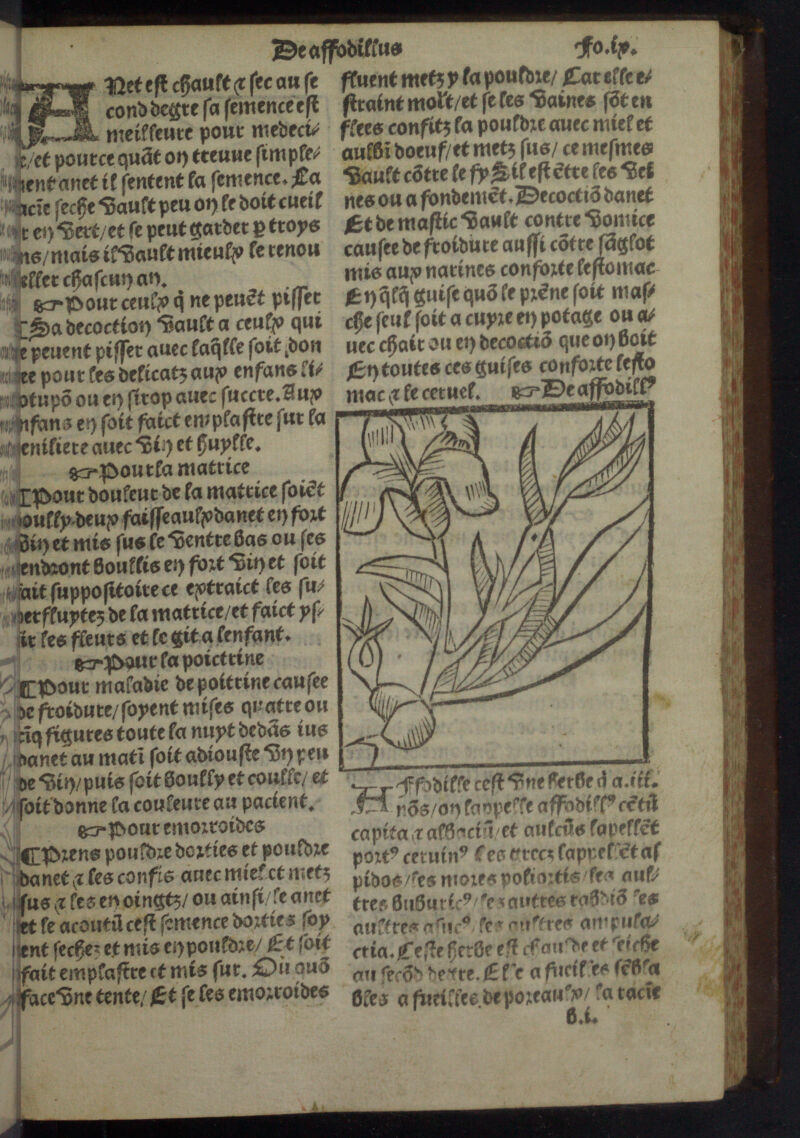 De affodillus
Fo.ix.
ANet est chault & sec au se
cond degre sa semence est
meilleure pour medeci⸗
/et pource quāt on treuue simple⸗
ment anet il sentent la semence. La
racie seche vault peu on le doit cueil
lir en vert/et se peut garder p troys
ans/mais il vault mieulx le renou
ueller chascun an.
☞ Pour ceulx q̄ ne peuēt pisser
¶ Sa decoction vault a ceulx qui
ne peuent pisser auec laq̄lle soit don
nee pour les delicatz aux enfans si⸗
en sirop auec succre. Aux
enfans en soit faict emplastre sur la
penilliere auec vin et huylle.
☞ Pour la matrice
¶ Pour douleur de la matrice soiēt
boullyz deux faisseaulx danet en fort
vin et mis sus le ventre bas ou ses
boullis en fort vin et soit
fait suppositoire ce extraict les su⸗
perfluytez de la matrice/et faict ys⸗
sir les fleurs et le git a lenfant.
☞ Pour la poictrine
¶ Pour maladie de poittrine causee
de froidure/soyent mises quatre ou
cīq figures toute la nuyt dedās ius
danet au mati soit adiouste vn peu
de vin/puis soit boully et coulle/et
soit donne la couleure au pacient.
☞ Pour emorroides
¶ Prens pouldre dorties et pouldre
danet & les confis auec miel et metz
sus & les en oingtz/ou ainsi/le anet
et le acoutū cest semence dorties soy
ent seches et mis en pouldre/Et soit
fait emplastre et mis sur. Du quō
face vne tente/Et se les emorroides
fluent metz y la pouldre/Car elle e⸗
straint molt/et se les vaines sōt en
flees confitz la pouldre auec miel et
aulssi boeuf/et metz sus/ce mesmes
vault cōtre le fy Sil est ētre les vei
nes ou a fondemēt. Decoctiō danet
Et de mastic vault contre vomice
causee de froidure aussi cōtre sāglot
mis aux narines conforte lestomac
En q̄lq̄ guise quō le prēne soit mas⸗
che seul soit a cuyre en potage ou a⸗
uec chair ou en decoctiō que on boit
En toutes ces guises conforte lesto
mac & le cerueł. ☞ De affodill⁹
AFfodille cest vne herbe
nōs/on lappelle affodill⁹ cētū
capita & albuciū/et aulcūs lapellēt
port⁹ ceruin⁹ les grecz lappellēt af
pidos/les mores poliortis/les aul⸗
tres buburic⁹/les autres rabdiō les
aultres asuc⁹/les aultres ampula⸗
cria. Ceste herbe est chaulde et seiche
au secōd degre. Elle a fueilles sēbla
bles a fueilles de poreaulx/la racie
b.i.